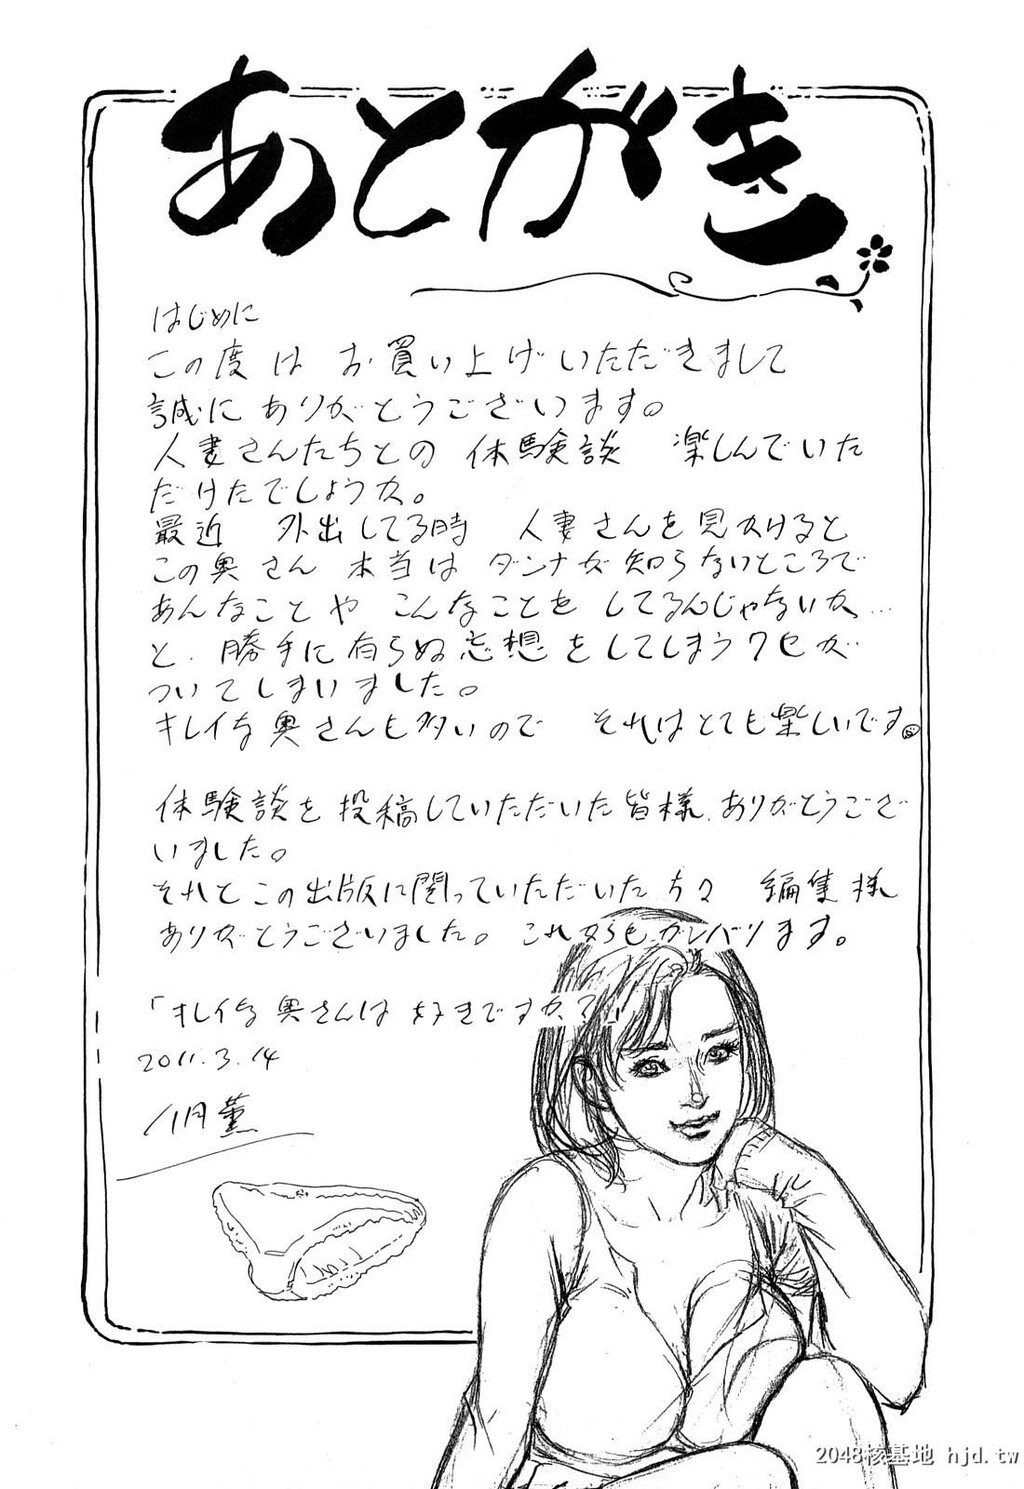 あとがき
はじめに
この度は お買い上げいただきまして
誠にありがとうございます。
人妻さんたちとの 体験談 楽しんでいた
だけたでしょうか。
最近 外出してる時 人妻さんを見かけると
この奥さん 本当は ダンナが知らないところで
あんなことや こんなことを してるんじゃないか…
と、勝手に有らぬ妄想をしてしまうクセが
ついてしまいました。
キレイな奥さんも多いので それはとても楽しいです。
体験談を投稿していただいた皆様、ありがとうござ
いました。
それとこの出版に関っていただいた方々 編集様
ありがとうございました。これからもガンバります。
「キレイな奥さんは 好きですか?」
2011.3.14
八月薫
2048核基地 hjd.tw